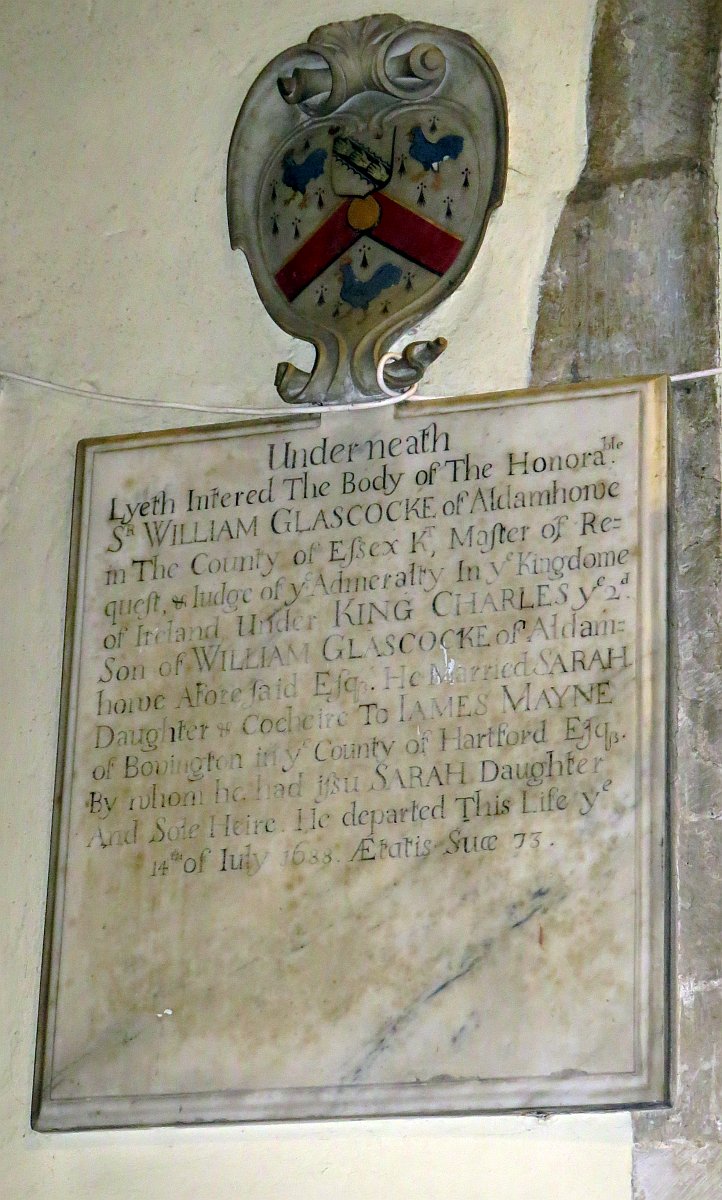 Underneath
Lyeth Intered The Body of The Honora.ble
Sr. WILLIAM GLASCOCKE of Aldamhowe
in The County of Essex Kt, Master of Re=
quest, & Iudge of ye Admeralty In ye Kingdome
of Ireland Under KING CHARLES ye 2d.
Son of WILLIAM GLASCOCKE of Aldam=
howe Aforesaid Esqs. He Married SARAH
Daughter & Coheire To IAMES MAYNE
of Bovington in ye County of Hartford Esqs.
By whom he had issu SARAH Daughter
And Sole Heire. He departed This Life ye
14th of Iuly 1688. Ætatis Suæ 73.